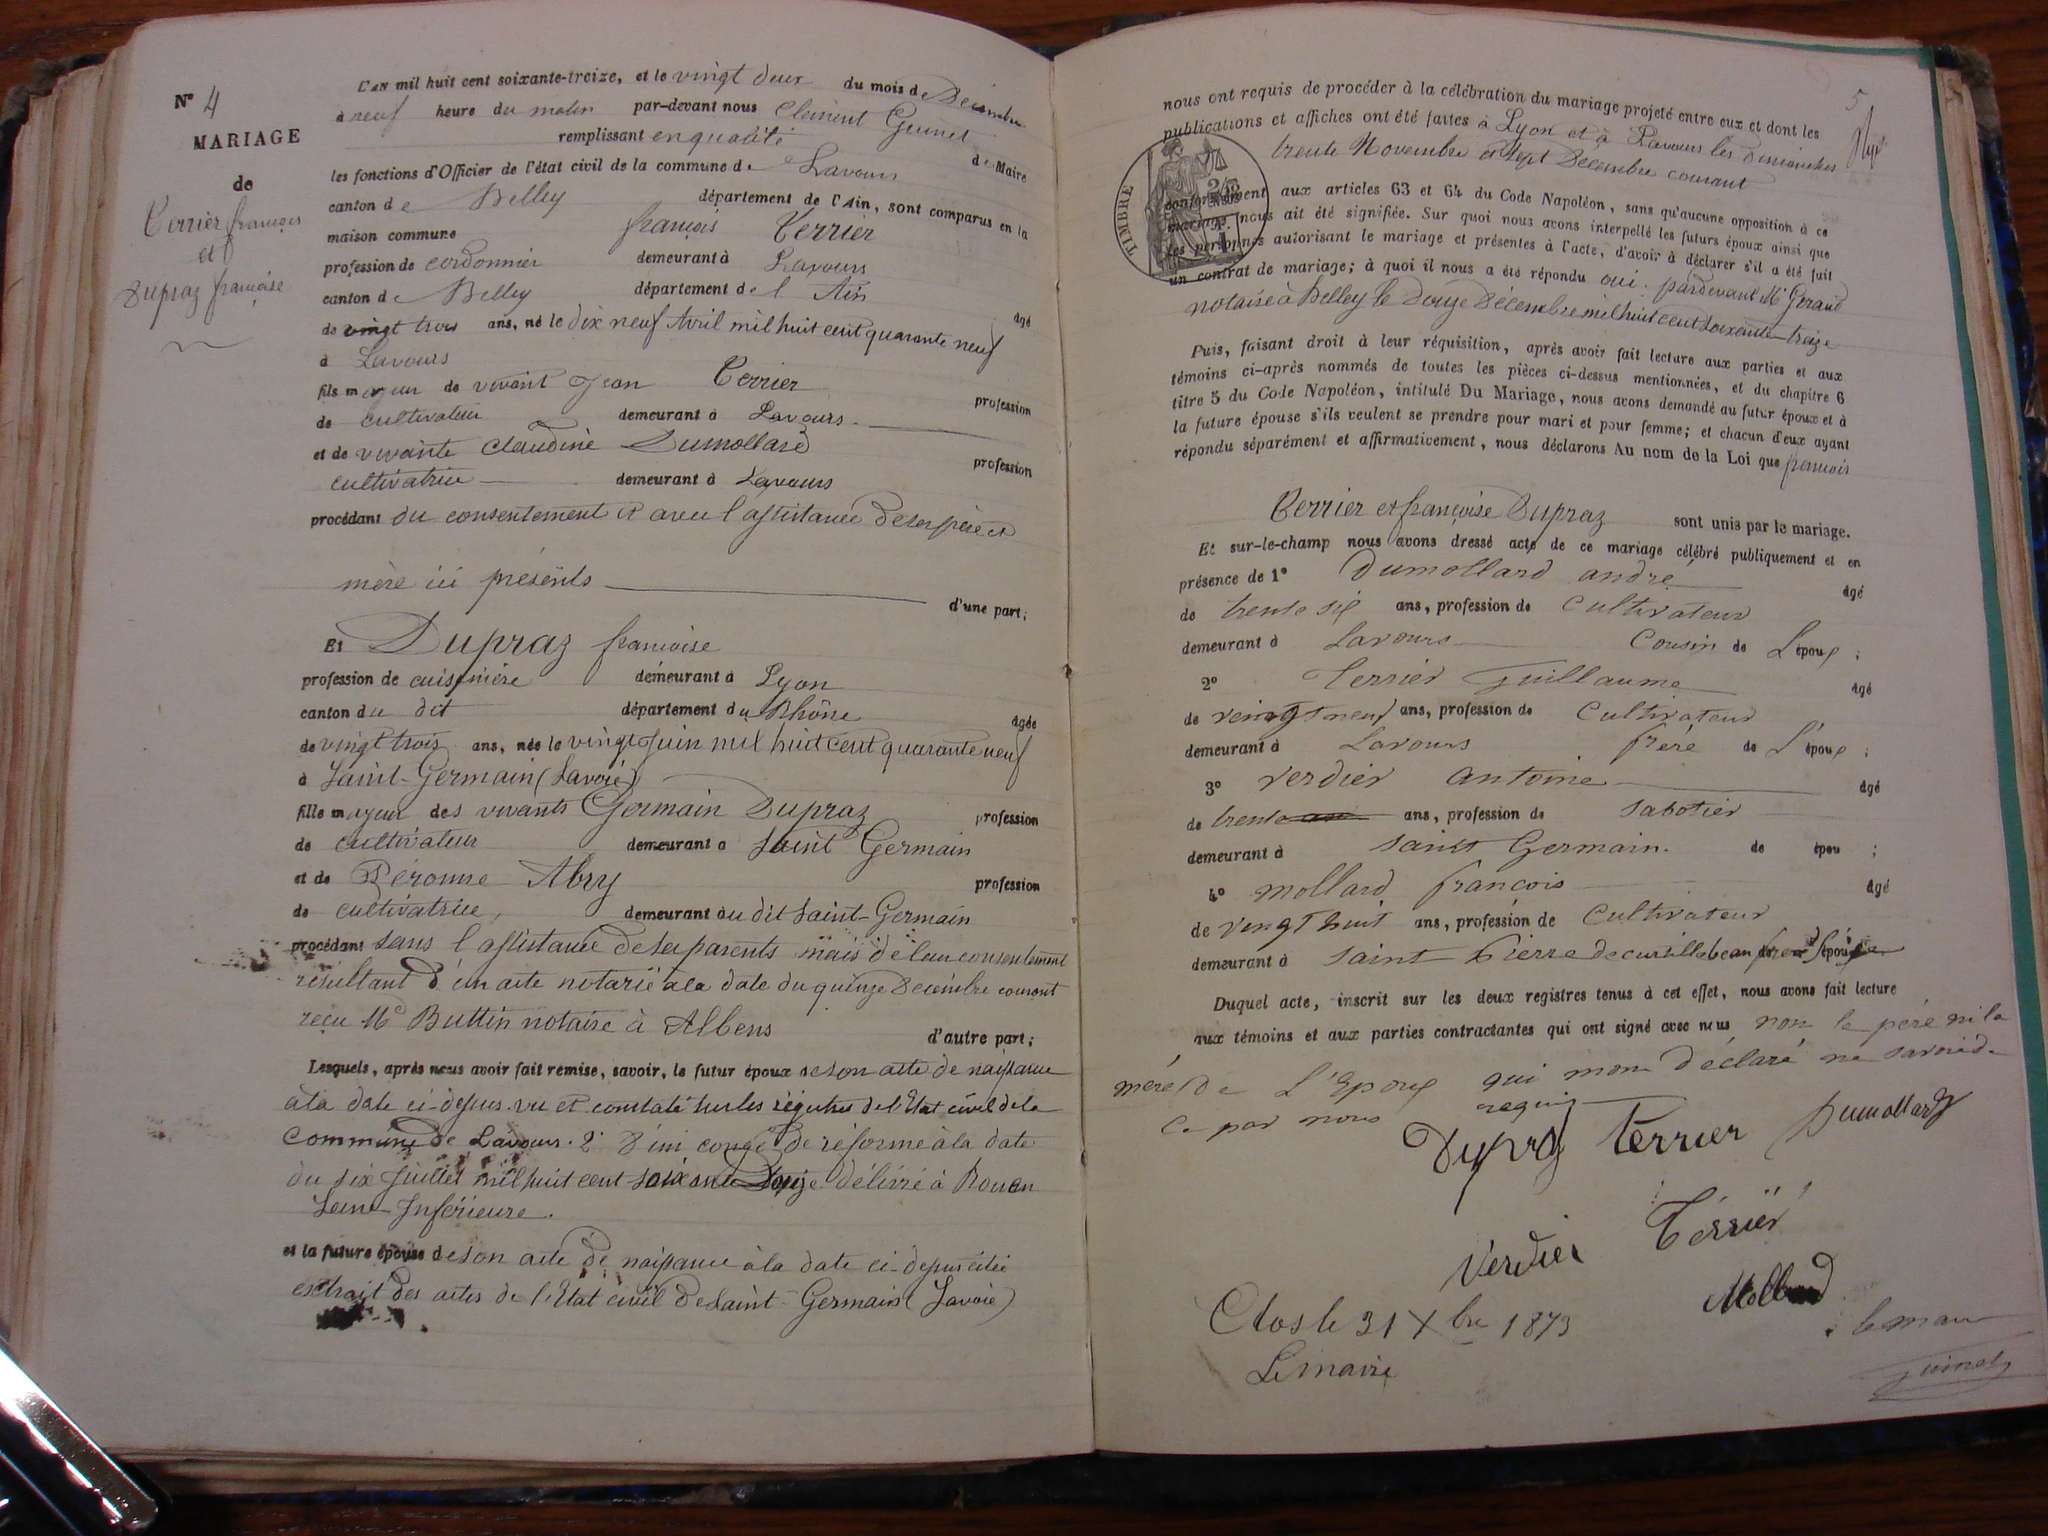 N° 4
MARIAGE
de
Terrier françois
et
Dupraz françoise
L'AN mil huit cent soixante-treize, et le vingt deux du mois de Décembre
à neuf heure du matin par-devant nous Clément Guinet
remplissant en qualité de Maire
les fonctions d'Officier de l'état civil de la commune de Lavours
canton de Belley département de l'Ain, sont comparus en la
maison commune françois Terrier
profession de cordonnier demeurant à Lavours
canton de Belley département de l'Ain âgé
de vingt trois ans, né le dix neuf Avril mil huit cent quarante neuf
à Lavours
fils majeur de vivant Jean Terrier profession
de cultivateur demeurant à Lavours
et de vivante Claudine Dumollard profession
cultivatrice demeurant à Lavours
procédant du consentement et avec l'assistance de ses père et
mère ici présents d'une part;
Et Dupraz françoise
profession de cuisinière demeurant à Lyon
canton du dit département du Rhône âgée
de vingt trois ans, née le vingt Juin mil huit cent quarante neuf
à Saint-Germain (Savoie)
fille majeur des vivants Germain Dupraz profession
de cultivateur demeurant à Saint Germain
et de Péronne Abry profession
de cultivatrice, demeurant au dit Saint-Germain
procédant sans l'assistance de ses parents mais de leur consentement
résultant d'un acte notarié à la date du quinze Décembre courant
reçu Me Buttin notaire à Albens d'autre part;
Lesquels, après nous avoir fait remise, savoir, le futur époux de son acte de naissance
à la date ci-dessus vu et constaté sur les régistres de l'Etat civil de la
Commune de Lavours. 2° D'un congé de réforme à la date
du six Juillet mil huit cent soixante délivré à Rouen
Seine-Inférieure.
et la future épouse de son acte de naissance à la date ci-dessus citée
extrait des actes de l'Etat civil de Saint-Germain (Savoie)
5
nous ont requis de procéder à la célébration du mariage projeté entre eux et dont les
publications et affiches ont été faites à Lyon et à Lavours les dimanches
trente Novembre et sept Décembre courant
TIMBRE
conformément aux articles 63 et 64 du Code Napoléon, sans qu'aucune opposition à ce
mariage nous ait été signifiée. Sur quoi nous avons interpellé les futurs époux ainsi que
les personnes autorisant le mariage et présentes à l'acte, d'avoir à déclarer s'il a été fait
un contrat de mariage; à quoi il nous a été répondu oui. pardevant Me Géraud
notaire à Belley le Douze Décembre mil huit cent soixante-treize
Puis, faisant droit à leur réquisition, après avoir fait lecture aux parties et aux
témoins ci-après nommés de toutes les pièces ci-dessus mentionnées, et du chapitre 6
titre 5 du Code Napoléon, intitulé Du Mariage, nous avons demandé au futur époux et à
la future épouse s'ils veulent se prendre pour mari et pour femme; et chacun d'eux ayant
répondu séparément et affirmativement, nous déclarons Au nom de la Loi que françois
Terrier et françoise Dupraz sont unis par le mariage.
Et sur-le-champ nous avons dressé acte de ce mariage célébré publiquement et en
présence de 1° Dumollard andré âgé
de trente six ans, profession de Cultivateur
demeurant à Lavours Cousin de L'époux;
2° Terrier Guillaume âgé
de vingt neuf ans, profession de Cultivateur
demeurant à Lavours frère de L'époux;
3° Verdier antoine âgé
de trente ans, profession de sabotier
demeurant à saint Germain. de épou ;
4° mollard françois âgé
de vingt huit ans, profession de Cultivateur
demeurant à saint Pierre de curtille beau frère de l'épouse
Duquel acte, inscrit sur les deux registres tenus à cet effet, nous avons fait lecture
aux témoins et aux parties contractantes qui ont signé avec nous non le père ni la
mère de L'Epoux qui mon déclaré ne savoir de
Ce par nous requis
Dupraz Terrier Dumollard
Verdier Térrier
Mollard
Clos le 31 Xbre 1873
Le maire
le maire
Guinet